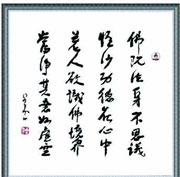 佛陀法身不思議
恒沙功德在心中
若人欲識佛境界
當淨其意如虛空